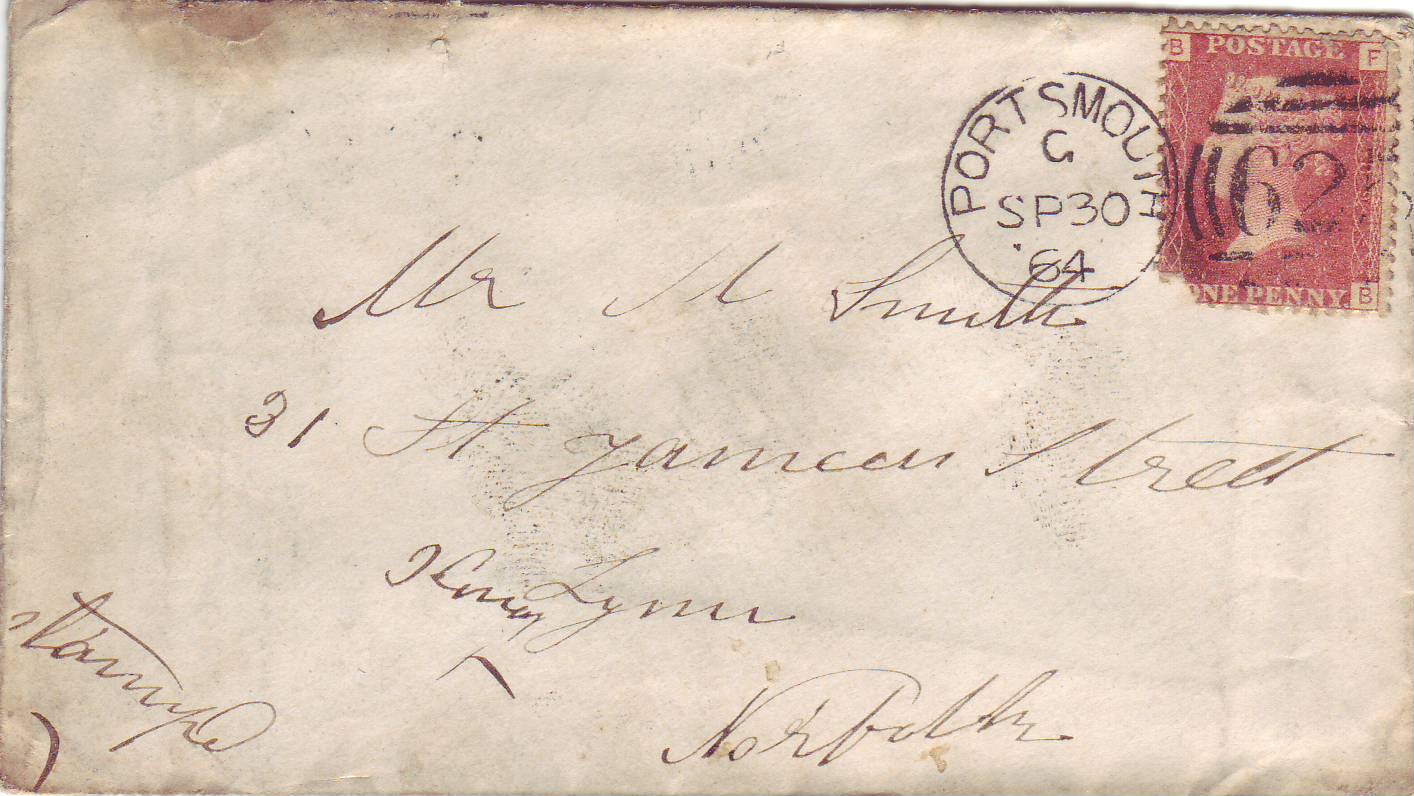 B POSTAGE F
PORTSMOUTH
G
SP30
64
62
ONE PENNY B
Mr M Smith
31 St James Street
Kings Lynn
Norfolk
stamps